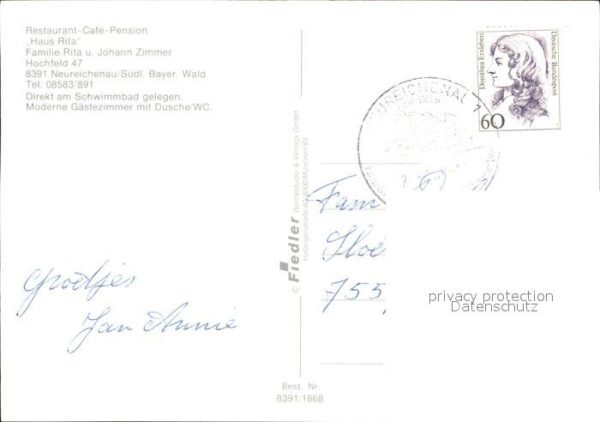 Restaurant-Café-Pension
„Haus Rita"
Familie Rita u. Johann Zimmer
Hochfeld 47
8391 Neureichenau/Südl. Bayer. Wald
Tel. 08583/891
Direkt am Schwimmbad gelegen.
Moderne Gästezimmer mit Dusche/WC.
Groetjes
Jan Annie
© Fiedler Werbestudio & Verlags GmbH
8000 München 83
Best. Nr.
8391/1868
UREICHENAU
Dorothea Erxleben
60
Deutsche Bundespost
Fam
755
privacy protection
Datenschutz